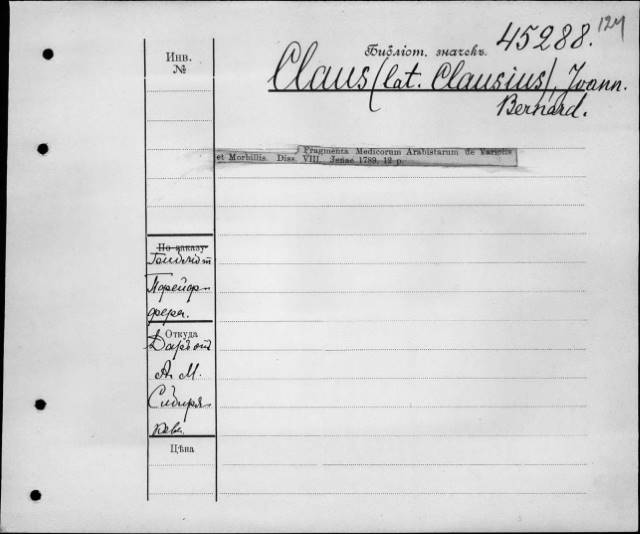 124
Библіот. значекъ 45288.
Инв.
№
Claus (lat. Clausius), Joann.
Bernard.
Fragmenta Medicorum Arabistarum de Variolis
et Morbillis. Diss. VIII. Jenae 1789. 12 p.
По заказу
Библіот
Порейор-
фера.
Откуда
Даръ отъ
А. М.
Сибиря-
кова.
Цѣна